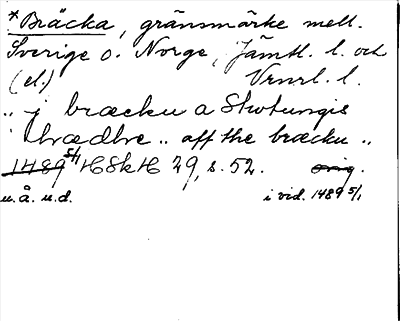 *Bräcka, gränsmärke mell.
Sverige o. Norge, Jämtl. l. och
(el.) Vrml. l.
„ i bræcku a Stwtungis
brædhre „ aff the bræcku „
1489 5/1 HSkH 29, s. 52. orig.
u.å. u.d. i vid. 1489 5/1